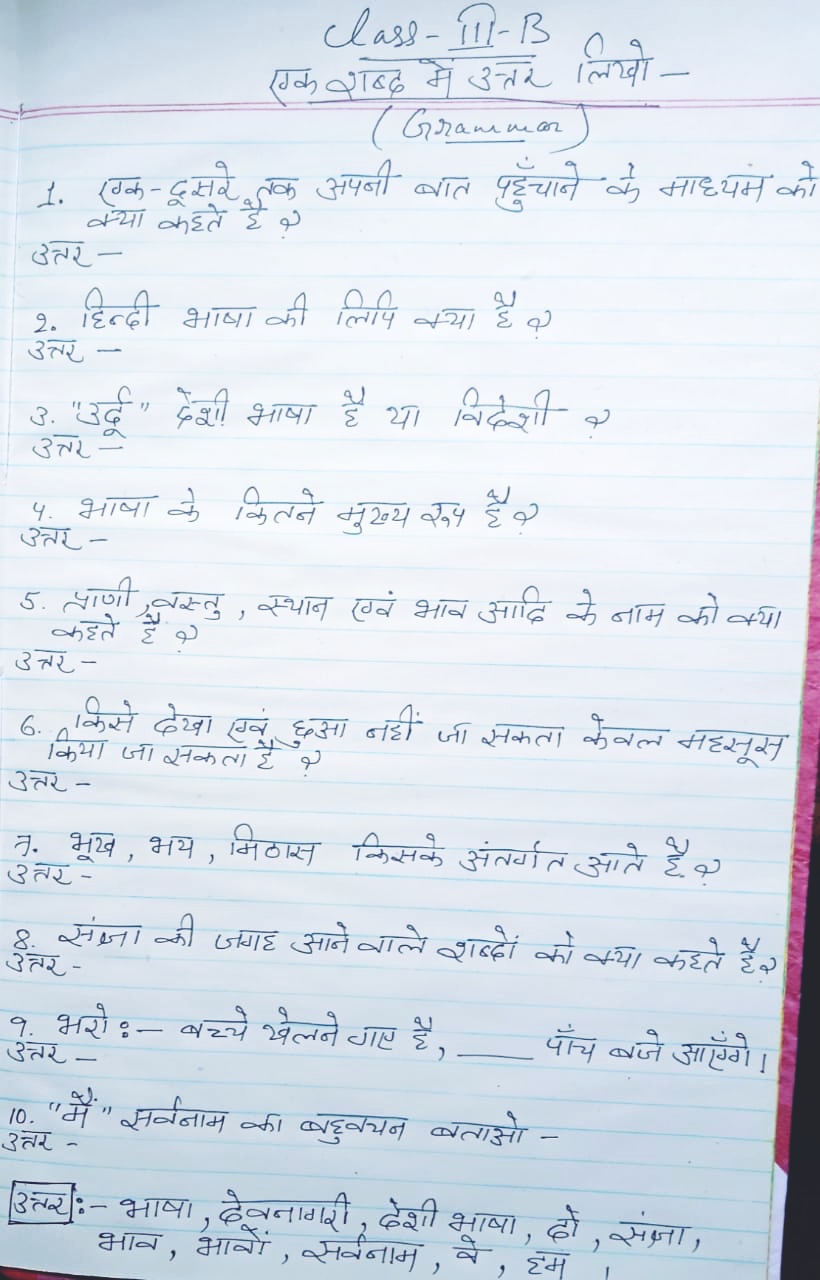 Class-III-B
एक शब्द में उत्तर लिखो -
(Grammar)
1. एक-दूसरे तक अपनी बात पहुँचाने के माध्यम को
क्या कहते है ?
उत्तर -
2. हिन्दी भाषा की लिपि क्या है ?
उत्तर -
3. "उर्दू" देशी भाषा है या विदेशी ?
उत्तर -
4. भाषा के कितने मुख्य रूप है ?
उत्तर -
5. प्राणी, वस्तु, स्थान एवं भाव आदि के नाम को क्या
कहते है ?
उत्तर -
6. किसे देखा एवं छुआ नहीं जा सकता केवल महसूस
किया जा सकता है ?
उत्तर -
7. भूख, भय, मिठास किसके अंतर्गत आते है ?
उत्तर -
8. संज्ञा की जगह आने वाले शब्दों को क्या कहते है ?
उत्तर -
9. भरो :- बच्चे खेलने गए है, ____ पाँच बजे आएँगे।
उत्तर -
10. "मैं" सर्वनाम का बहुवचन बताओ -
उत्तर -
उत्तर :- भाषा, देवनागरी, देशी भाषा, दो, संज्ञा,
भाव, भावों, सर्वनाम, वे, हम ।